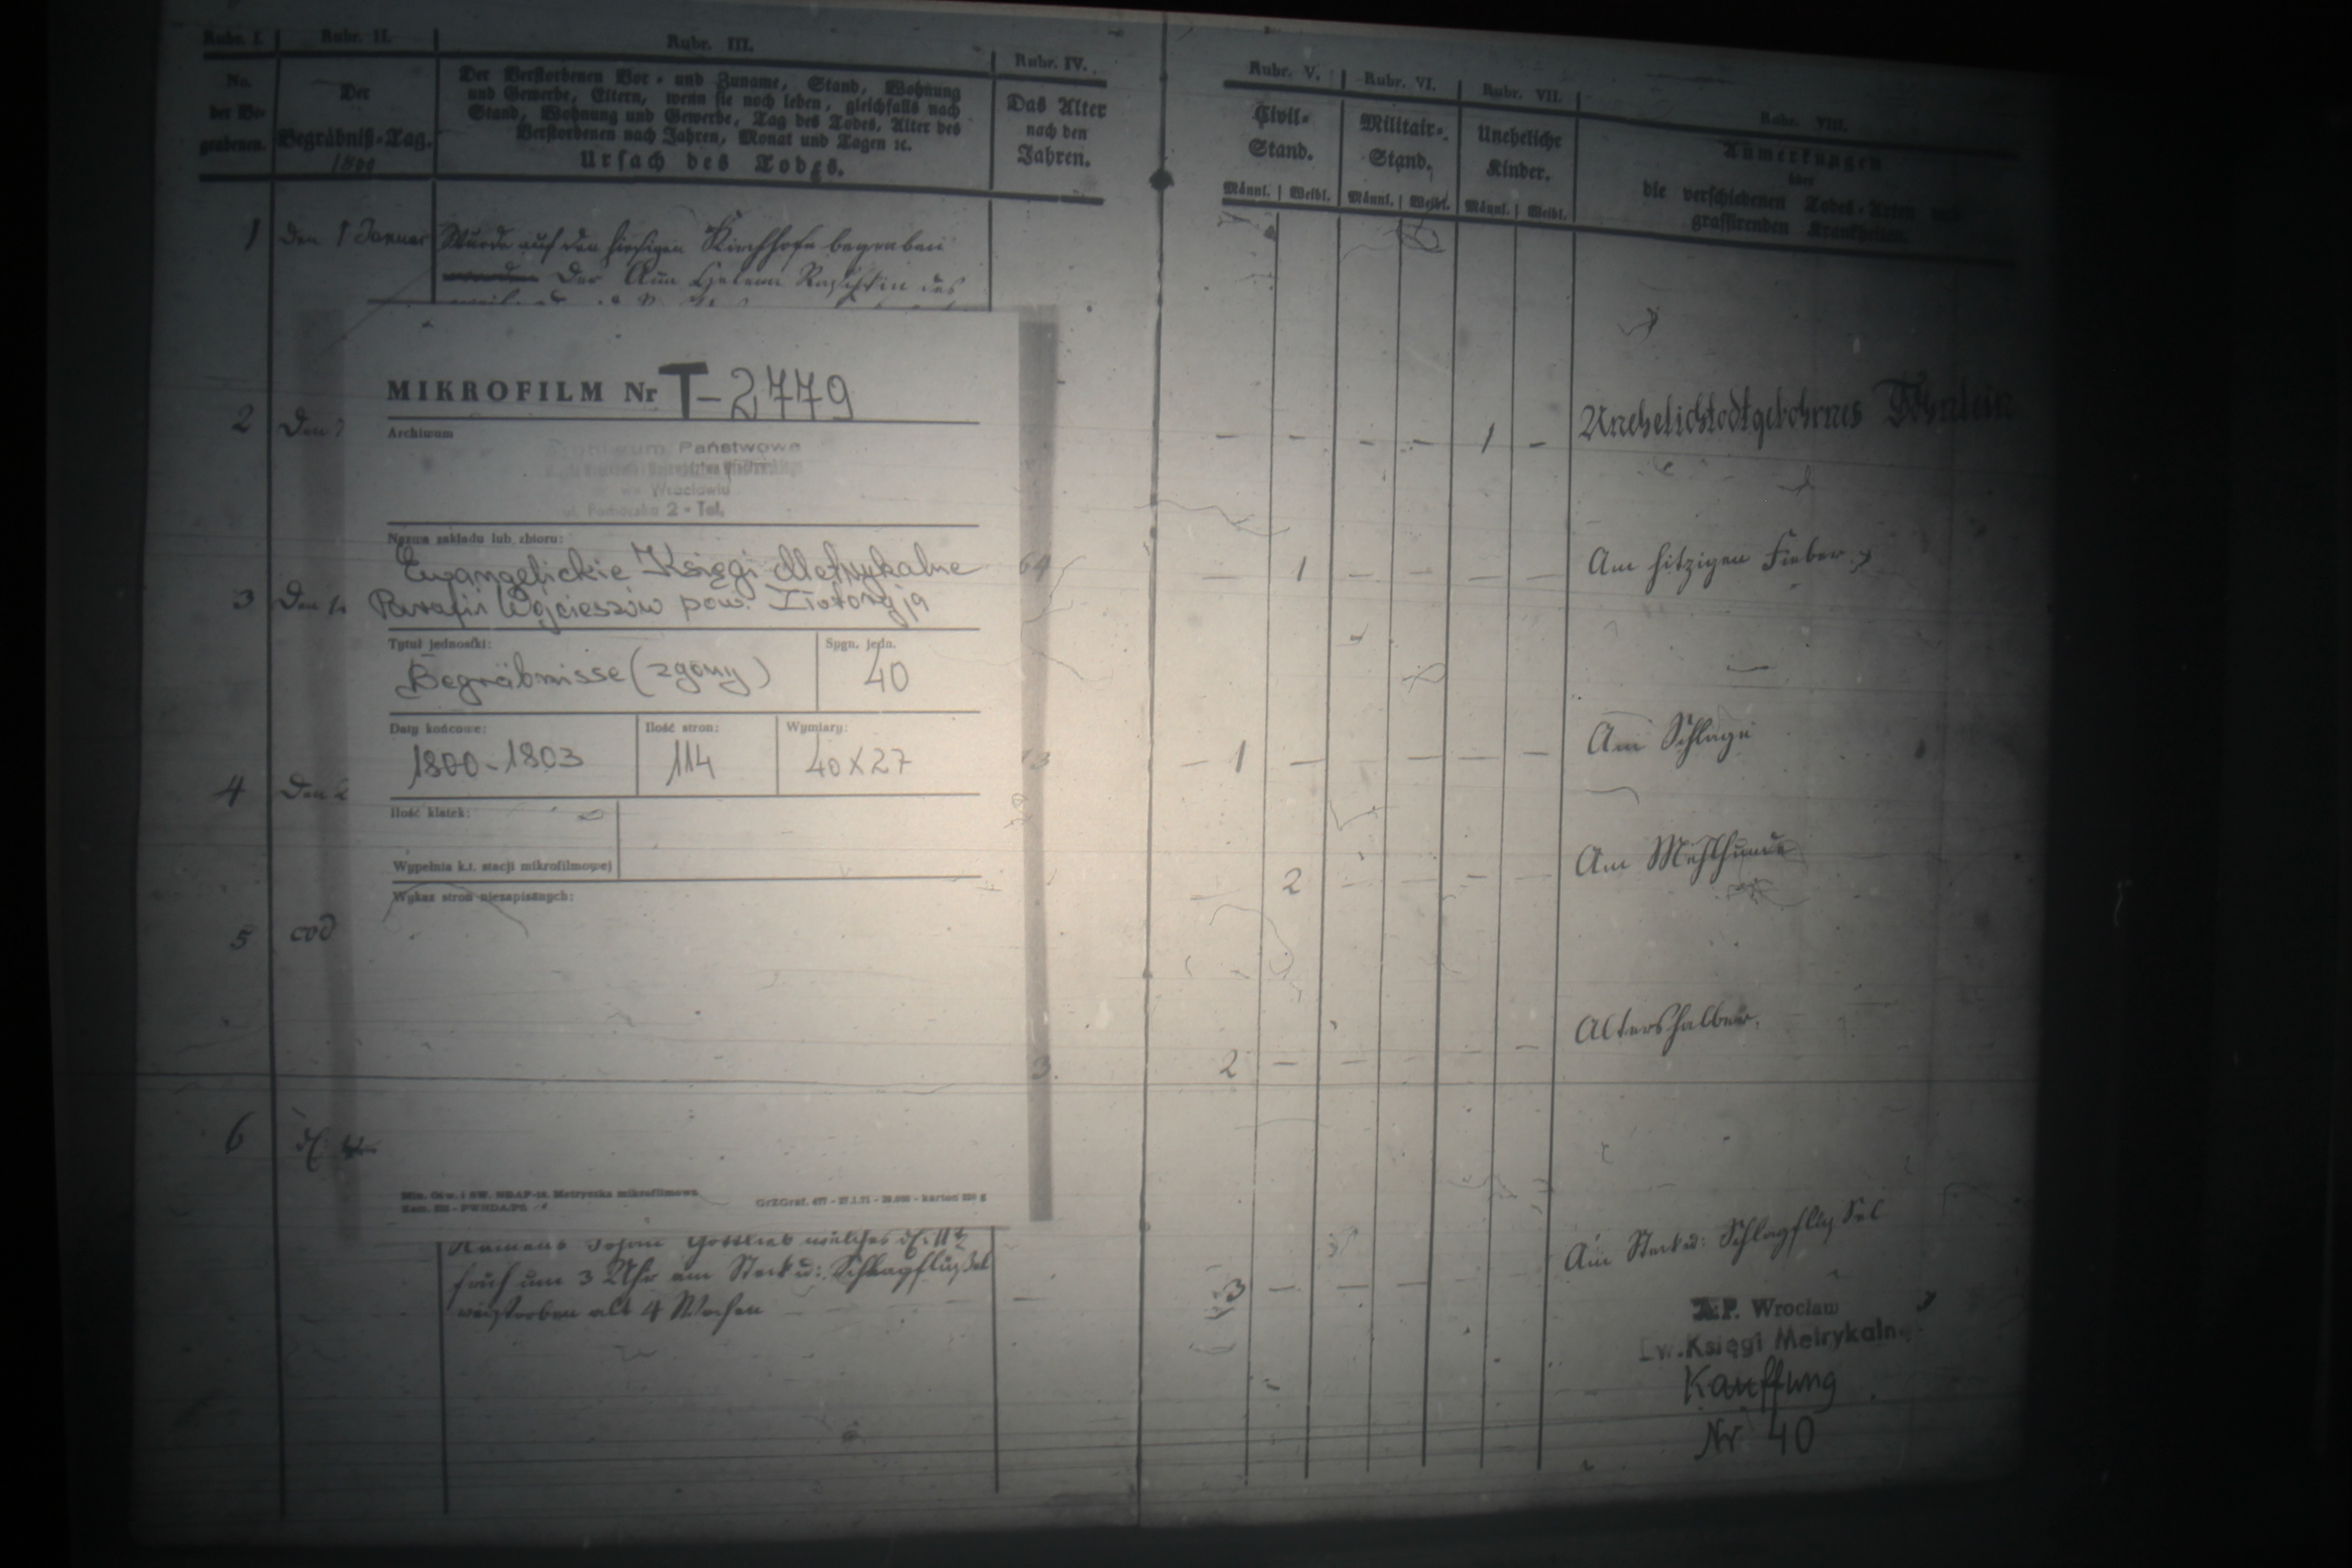 Rubr. I.
Rubr. II.
Rubr. III.
Rubr. IV.
No.
der Be-
grabenen.
Der
Begräbniß-Tag.
1800
Der Verstorbenen Vor- und Zuname, Stand, Wohnung
und Gewerbe, Eltern, wenn sie noch leben, gleichfalls nach
Stand, Wohnung und Gewerbe, Tag des Todes, Alter des
Verstorbenen nach Jahren, Monat und Tagen ꝛc.
Ursach des Todes.
Das Alter
nach den
Jahren.
1 Den 1 Januar Wurde auf den hiesigen Kirchhofe begraben
Der Ana Helena Raschkin des
2 Den 7
3 Den 1
4 Den 2
5 eod
6 d.
MIKROFILM Nr T-2779
Archiwum
Archiwum Państwowe
we Wrocławiu
2 - Tel.
Nazwa zakładu lub zbioru:
Ewangelickie Księgi Metrykalne
Parafii Wojcieszów pow. Złotoryja
Tytuł jednostki:
Begräbnisse (zgony)
Sygn. jedn.
40
Daty końcowe:
1800-1803
Ilość stron:
114
Wymiary:
40X27
Ilość klatek:
Wypełnia k.t. stacji mikrofilmowej
Wykaz stron niezapisanych:
64
3
Namens Johan Gottlieb welches d. 11t
früh um 3 Uhr am Steck u: Schlagflußel
verstorben alt 4 Wochen
Rubr. V.
Rubr. VI.
Rubr. VII.
Rubr. VIII.
Civil-
Stand.
Militair-
Stand.
Uneheliche
Kinder.
Anmerkungen
über
die verschiedenen Todes-Arten und
grassirenden Krankheiten.
Männl. | Weibl. Männl. | Weibl. Männl. | Weibl.
- - - - 1 - Unehelichtodtgebohrnes Söhnlein
- 1 - - - - Am hitzigen Fieber
- 1 - - - - Am Schlage
- 2 - - - - Am
2 - - - - - Altershalber.
3 - - - Am Steck u: Schlagflußel
A.P. Wrocław
Ew. Księgi Metrykaln.
Kauffung
Nr 40